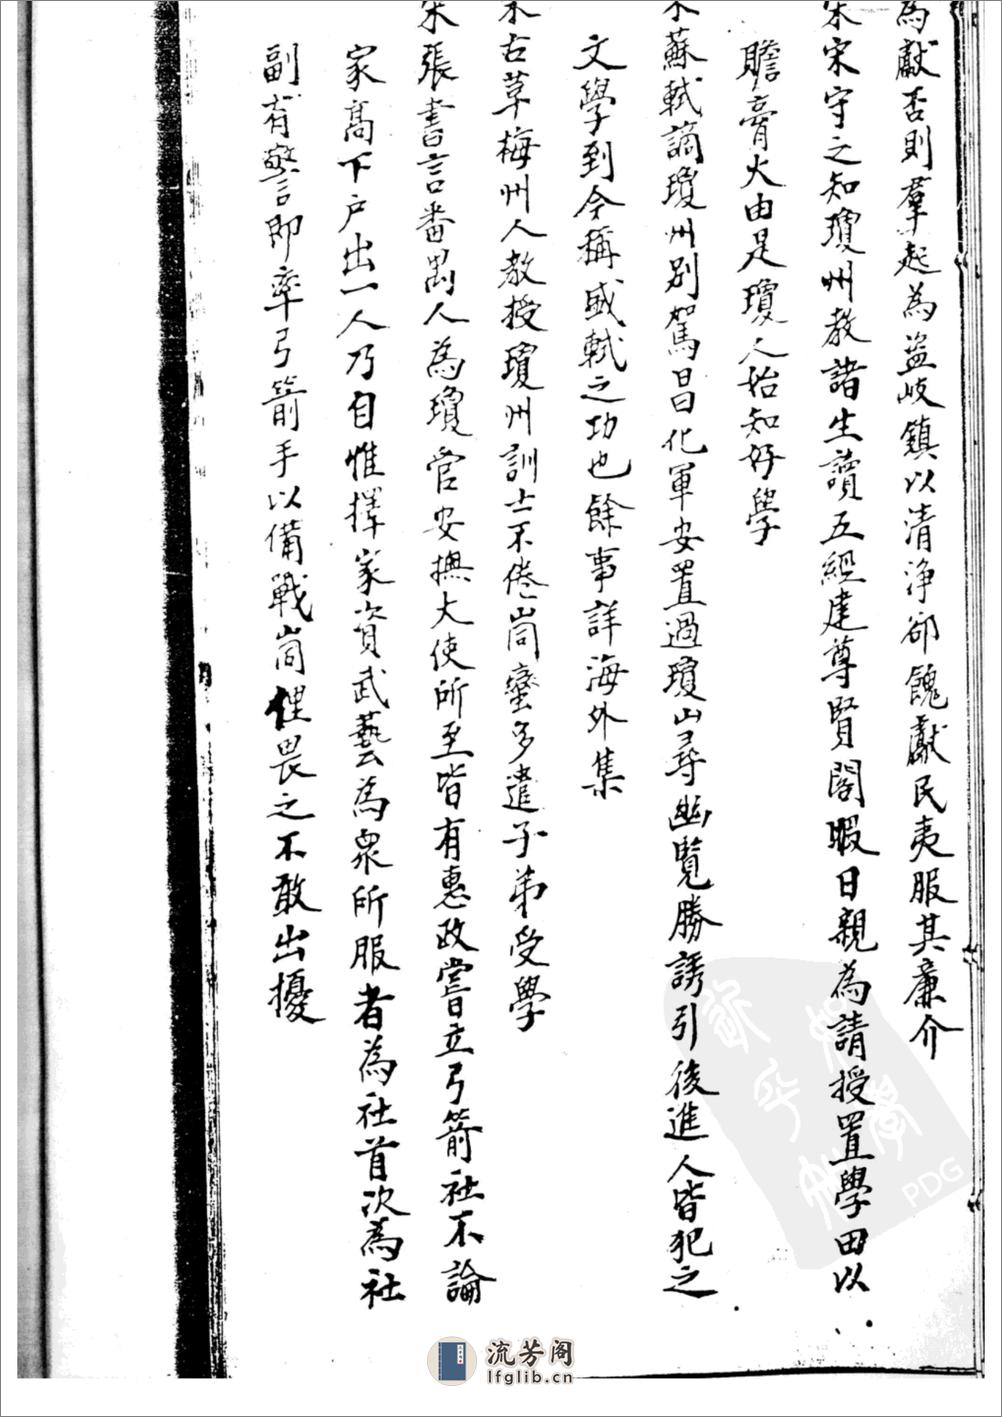 為獻否則羣起為盜岐鎮以清淨卻餽獻民夷服其廉介
宋宋守之知瓊州教諸生讀五經建尊賢閣暇日親為請授置學田以
贍膏火由是瓊人始知好學
宋蘇軾謫瓊州別駕昌化軍安置過瓊山尋幽覧勝誘引後進人皆犯之
文學到今稱盛軾之功也餘事詳海外集
宋古革梅州人教授瓊州訓士不倦峝蠻多遣子弟受學
宋張書言番禺人為瓊官安撫大使所至皆有惠政嘗立弓箭社不論
家髙下户出一人乃自惟擇家資武藝為衆所服者為社首次為社
副有警即率弓箭手以備戰峝俚畏之不敢出擾
PDG
流芳阁
lfglib.cn